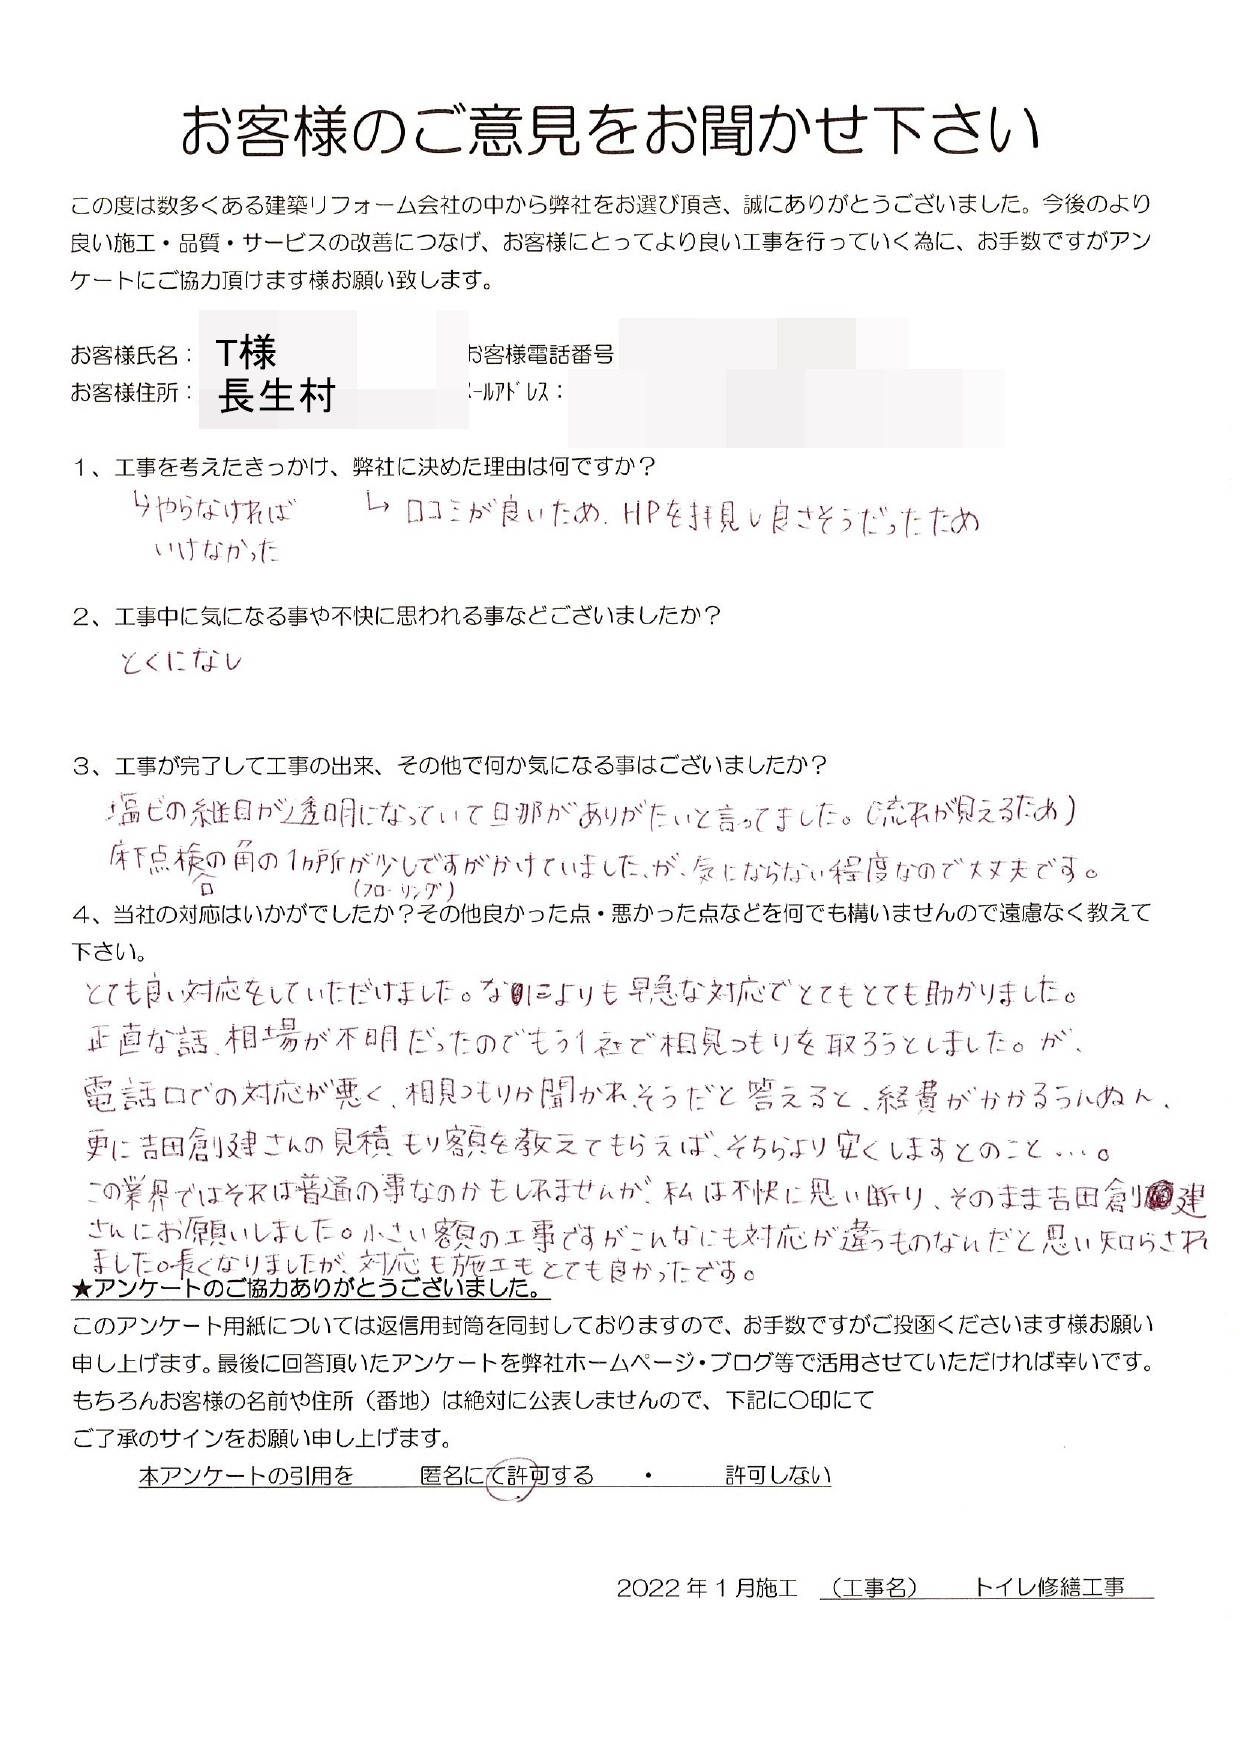 お客様のご意見をお聞かせ下さい
この度は数多くある建築リフォーム会社の中から弊社をお選び頂き、誠にありがとうございました。今後のより
良い施工・品質・サービスの改善につなげ、お客様にとってより良い工事を行っていく為に、お手数ですがアン
ケートにご協力頂けます様お願い致します。
お客様氏名： T様 お客様電話番号
お客様住所： 長生村 ﾒｰﾙｱﾄﾞﾚｽ：
1、工事を考えたきっかけ、弊社に決めた理由は何ですか？
↳やらなければ ↳ 口コミが良いため、HPを拝見し良さそうだったため
いけなかった
2、工事中に気になる事や不快に思われる事などございましたか？
とくになし
3、工事が完了して工事の出来、その他で何か気になる事はございましたか？
塩ビの継目が透明になっていて旦那がありがたいと言ってました。（流れが見えるため）
床下点検の角の1ヵ所が少しですがかけていました、が、気にならない程度なので大丈夫です。
口 （フローリング）
4、当社の対応はいかがでしたか？その他良かった点・悪かった点などを何でも構いませんので遠慮なく教えて
下さい。
とても良い対応をしていただけました。なによりも早急な対応でとてもとても助かりました。
正直な話、相場が不明だったのでもう1社で相見つもりを取ろうとしました。が、
電話口での対応が悪く、相見つもりか聞かれ、そうだと答えると、経費がかかるうんぬん、
更に吉田創建さんの見積もり額を教えてもらえば、そちらより安くしますとのこと…。
この業界ではそれは普通の事なのかもしれませんが、私は不快に思い断り、そのまま吉田創建
さんにお願いしました。小さい額の工事ですがこんなにも対応が違うものなんだと思い知らされ
ました。長くなりましたが、対応も施工もとても良かったです。
★アンケートのご協力ありがとうございました。
このアンケート用紙については返信用封筒を同封しておりますので、お手数ですがご投函くださいます様お願い
申し上げます。最後に回答頂いたアンケートを弊社ホームページ・ブログ等で活用させていただければ幸いです。
もちろんお客様の名前や住所（番地）は絶対に公表しませんので、下記に〇印にて
ご了承のサインをお願い申し上げます。
本アンケートの引用を 匿名にて許可する ・ 許可しない
2022年1月施工 （工事名） トイレ修繕工事